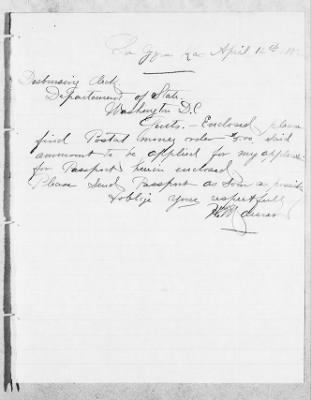 April 12th
Disbursing clerk
Departement of State
Washington D.C
Gents. - Enclosed please
find Postal money order $1.00 said
ammount to be applied for my applica
for Passport herein enclosed
Please Send Passport as soon as possible
& oblige yours respectfully